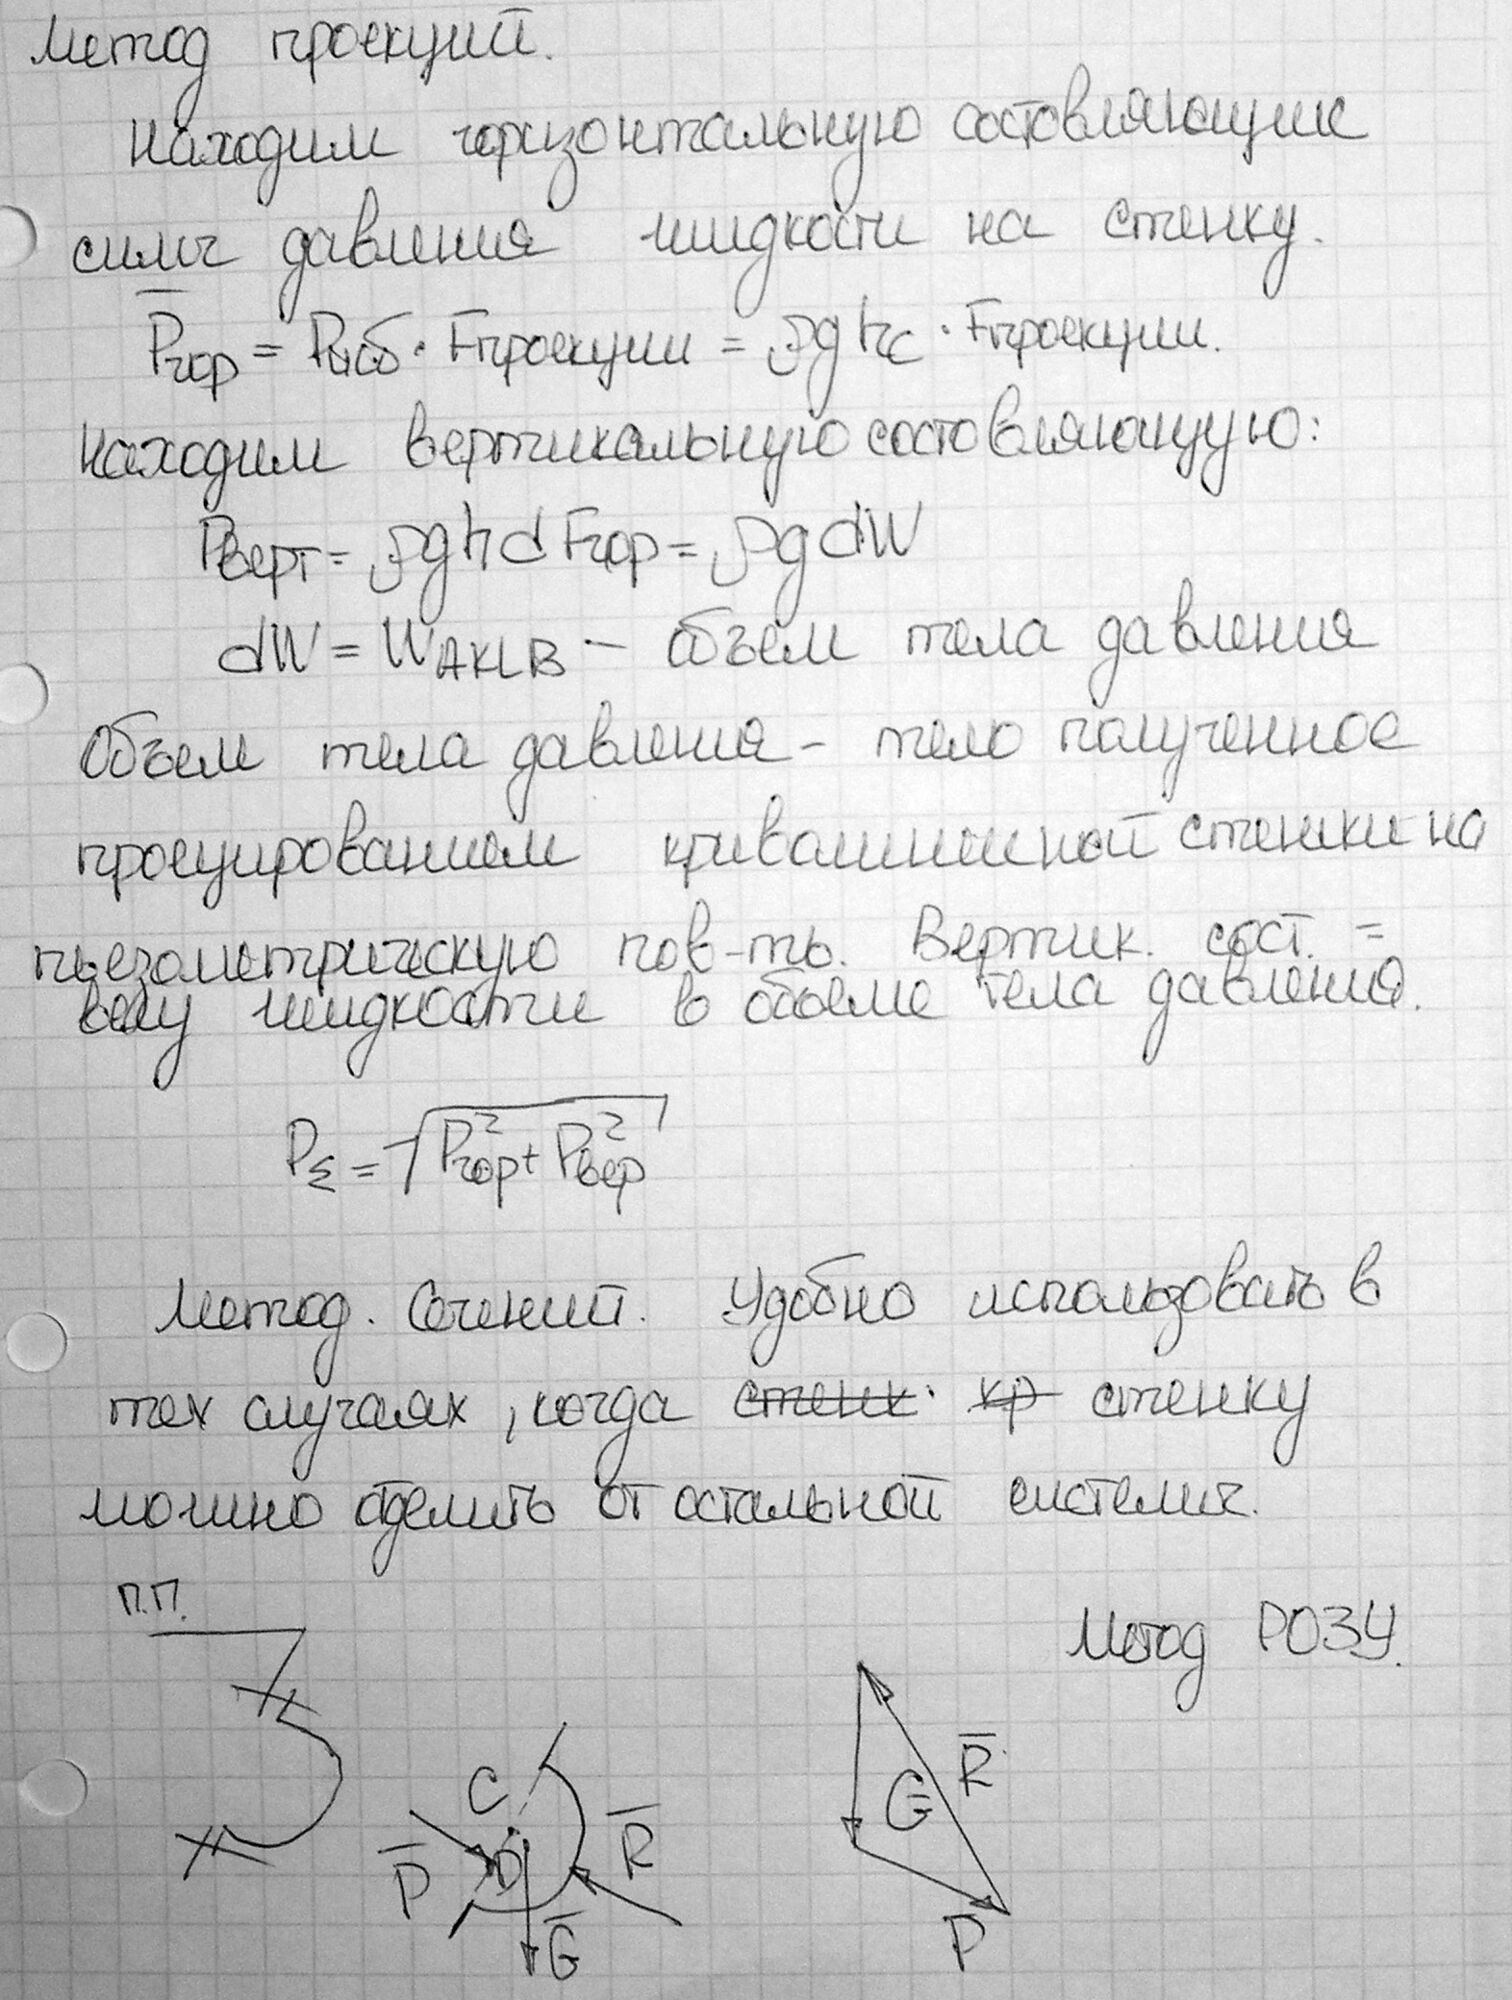 Метод проекций.
Находим горизонтальную состовляющие
силы давления жидкости на стенку.
P̅гор = Pизб · Fпроекции = ρghc · Fпроекции.
Находим вертикальную состовляющую:
Pверт = ρghdFгор = ρgdW
dW = WAKLB – объем тела давления
Объем тела давления – тело полученное
проецированием криволинейной стенки на
пьезометрическую пов-ть. Вертик. сост. =
весу жидкости в объеме тела давления.
PΣ = √(P²гор + P²вер)
Метод. Сечений. Удобно использовать в
тех случаях, когда стенк. кр стенку
можно отделить от остальной системы.
П.П.
Метод РОЗУ.
C
P̅
D
R̅
G̅
G
R̅
P